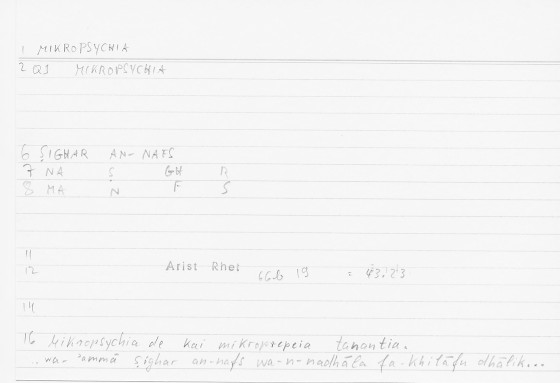 1 MIKROPSYCHIA
2 QJ MIKROPSYCHIA
6 ṢIGHAR AN-NAFS
7 NA Ṣ GH R
8 MA N F S
11
12 Arist Rhet 66b 19 = 43.23
14
16 Mikropsychia de kai mikroprepeia tanantia.
..wa-'ammā ṣighar an-nafs wa-n-nadhāla fa-khilāfu dhālik...